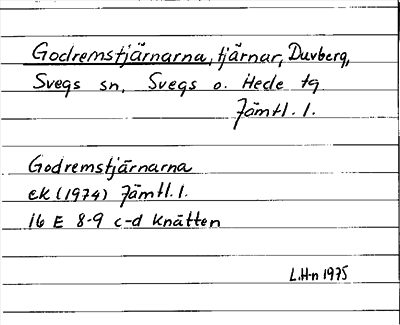 Godremstjärnarna, tjärnar, Duvberg,
Svegs sn, Svegs o. Hede tg
Jämtl. l.
Godremstjärnarna
ek (1974) Jämtl. l.
16 E 8-9 c-d Knätten
L.H-n 1975